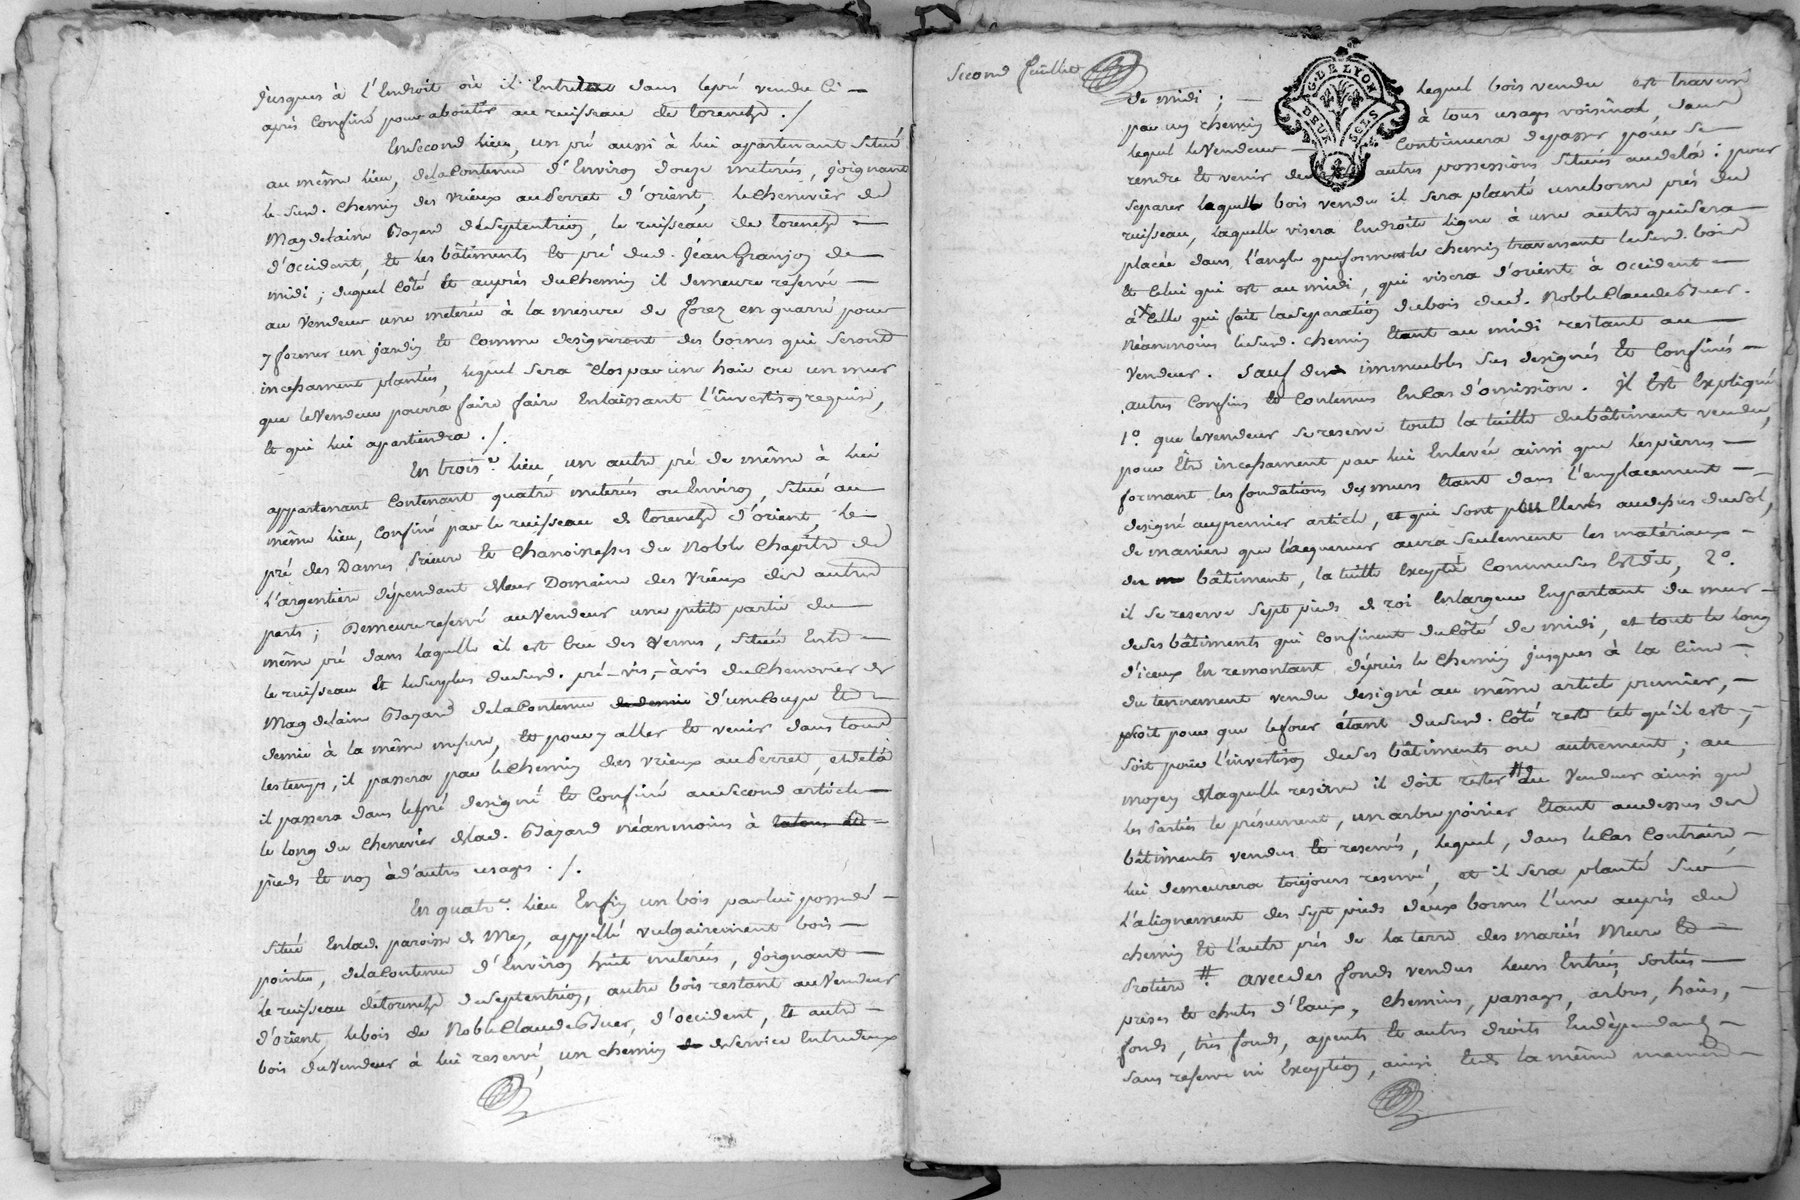 jusques à l'Endroit où il Entre dans le pré vendu ci —
après Confiné pour aboutir au ruisseau de torenche ./
En second Lieu, un pré aussi à lui apartenant Situé
au même lieu, de la Contenue d'Environ douze meterés, joignant
le Susd. Chemin des vrieux au Serret d'orient, le Chenevier de
Magdelaine Bayard de Septentrion, le ruisseau de torenche —
d'occident, et les bâtiments et pré dud. Jéan Granjon de
midi ; duquel Côté et auprès du Chemin il demeure réservé —
au Vendeur une meterée à la mesure de forez en quarré pour
y former un jardin et comme designeront des bornes qui Seront
incessament plantées, lequel sera Clos par une haie ou un mur
que le Vendeur pourra faire faire En laissant l'investison requise,
et qui lui apartiendra ./.
En trois.e lieu, un autre pré de même à lui
appartenant Contenant quatre meterés ou Environ, Situé au
même lieu, Confiné par le ruisseau de torenche d'orient, le —
pré des Dames Prieure et Chanoinesses du Noble Chapitre de
L'argentiere dépendant de leur Domaine des Vrieux des autres
parts ; Demeure reservé au Vendeur une petite partie du —
même pré dans laquelle il est Cru des Vernes, Située Entre —
le ruisseau et le Surplus du Susd. pré – vis-à-vis du Chenevier de
Magdelaine Bayard de la Contenue de demie d'une Coupe Et —
demie à la même mesure, et pour y aller et venir dans tous
les temps, il passera par le Chemin des vrieux au Serret, et de là
il passera dans le pré designé et Confiné au Second article —
le long du Chenevier de lad. Bayard néanmoins à talons et —
pieds et non à d'autres usages ./.
En quatr.e lieu Enfin un bois par lui possedé —
Situé En lad. paroisse de Mey, appellé vulgairement bois —
pointu, de la Contenue d'Environ huit meterées, joignant —
le ruisseau de torenche de Septentrion, autre bois restant au Vendeur
d'orient, le bois de Noble Claude Bruer, d'occident, et autre —
bois du Vendeur à lui reservé, un chemin de Service Entre deux
Second feuillet
G. DE LYON
DEUX SOLS
de midi ; — lequel bois vendu est traversé
par un chemin à tous usages voisinal, dans
lequel le Vendeur — Continuera de passer pour se
rendre et venir de autres possessions Situées au delà : pour
Separer lequel bois vendu il sera planté une borne près du
ruisseau, laquelle visera En droite ligne à une autre qui sera —
placée dans l'angle que forme le chemin traversant le Susd. bois
et Celui qui est au midi, qui visera d'orient à occident —
à Celle qui fait la Separation du bois dud. Noble Claude Bruer.
Néanmoins le Susd. chemin Etant au midi restant au —
Vendeur. Sauf des immeubles Sus designés et Confinés —
autres Confins et Contenues En Cas d'omission. Il Est Expliqué
1.o que le vendeur se reserve toute la tuille du bâtiment vendu,
pour Être incessament par lui Enlevée ainsi que les pierres —
formant les fondations des murs Etant dans l'emplacement —
designé au premier article, et qui sont peu Elevés au dessus du Sol,
de maniere que l'acquereur aura Seulement les matériaux —
du bâtiment, la tuille Exceptée Comme dessus Est dit, 2.o
il se reserve Sept pieds de roi En largeur En partant du mur —
de Ses bâtiments qui Confinent du Côté de midi, et tout le long
d'iceux En remontant dépuis le Chemin jusques à la Cime —
du tennement vendu designé au même article premier, —
Soit pour que le four étant du Susd. Côté reste tel qu'il est, —
Soit pour l'investison de Ses bâtiments ou autrement ; au —
moyen de laquelle reserve il doit rester # au Vendeur ainsi que
les Parties le présument, un arbre poirier Etant au dessus des
bâtiments vendus et reservés, lequel, dans le Cas Contraire, —
lui demeurera toujours reservé, et il Sera planté Sur —
L'alignement des Sept pieds deux bornes l'une auprès du
chemin Et l'autre près de la terre des mariés Mure Et —
Protiere #. avec des fonds vendus leurs Entrées, Sorties —
prises et chutes d'Eaux, Chemins, passages, arbres, haies, —
fonds, très fonds, apents et autres droits En dépendants —
Sans reserve ni Exception, ainsi Et de la même maniere —